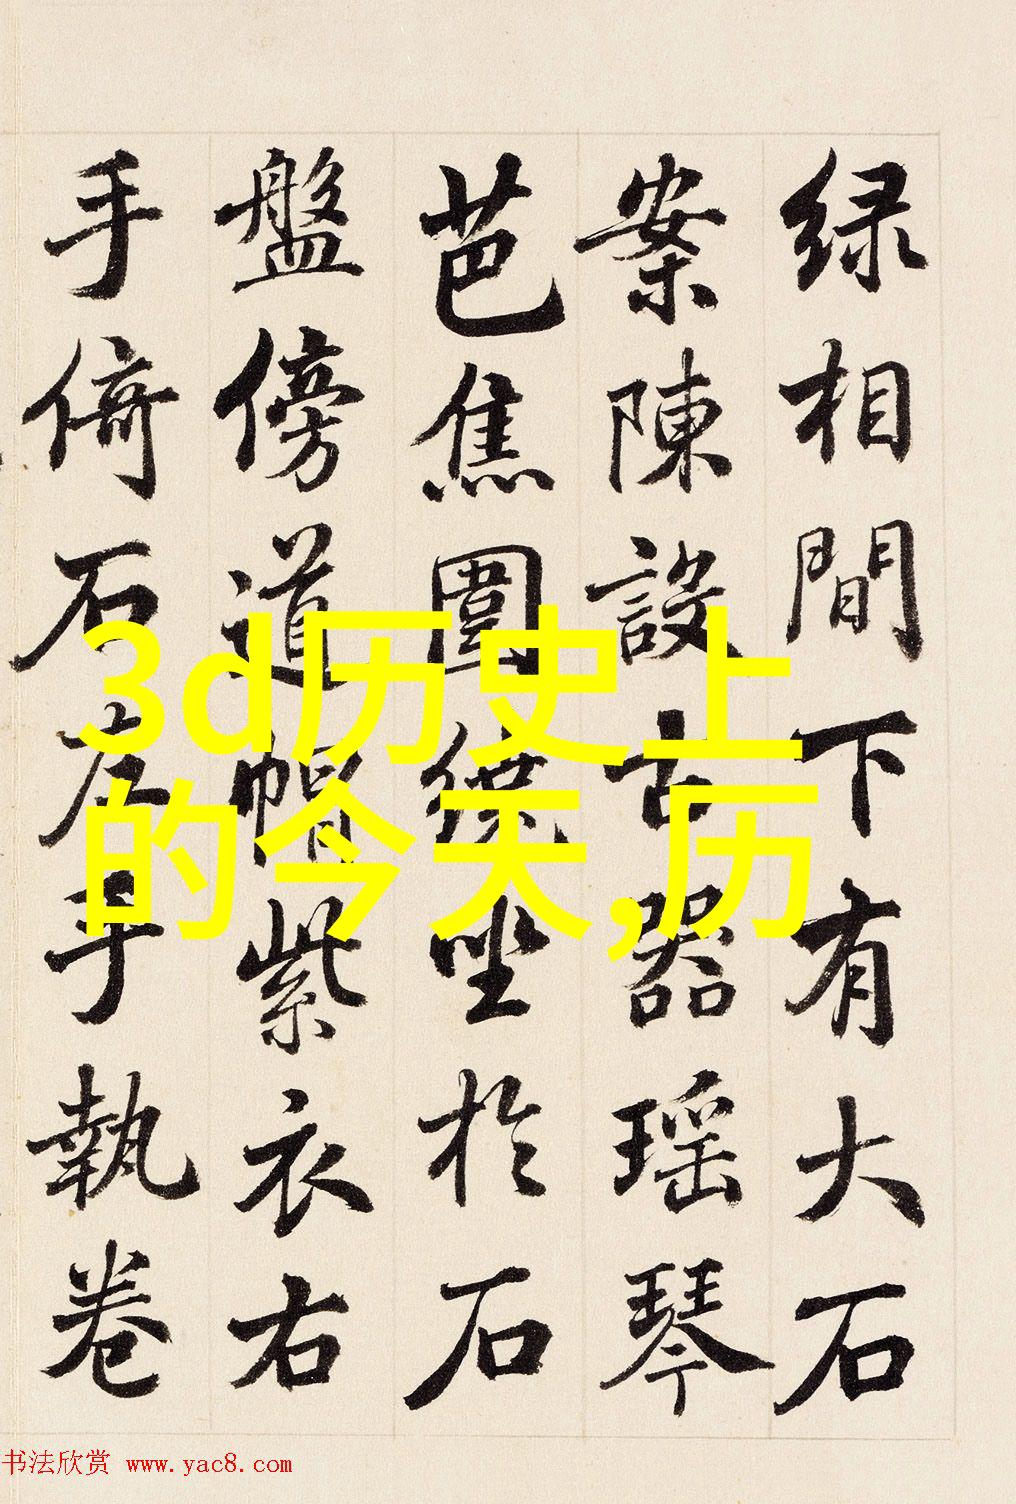 绿相間下有大石
案陳設古器瑶琴
芭焦圍繞坐於石
盤傍道帽紫衣右
手倚石左手執卷
3d历史上
的今天,历
书法欣赏 www.yac8.com